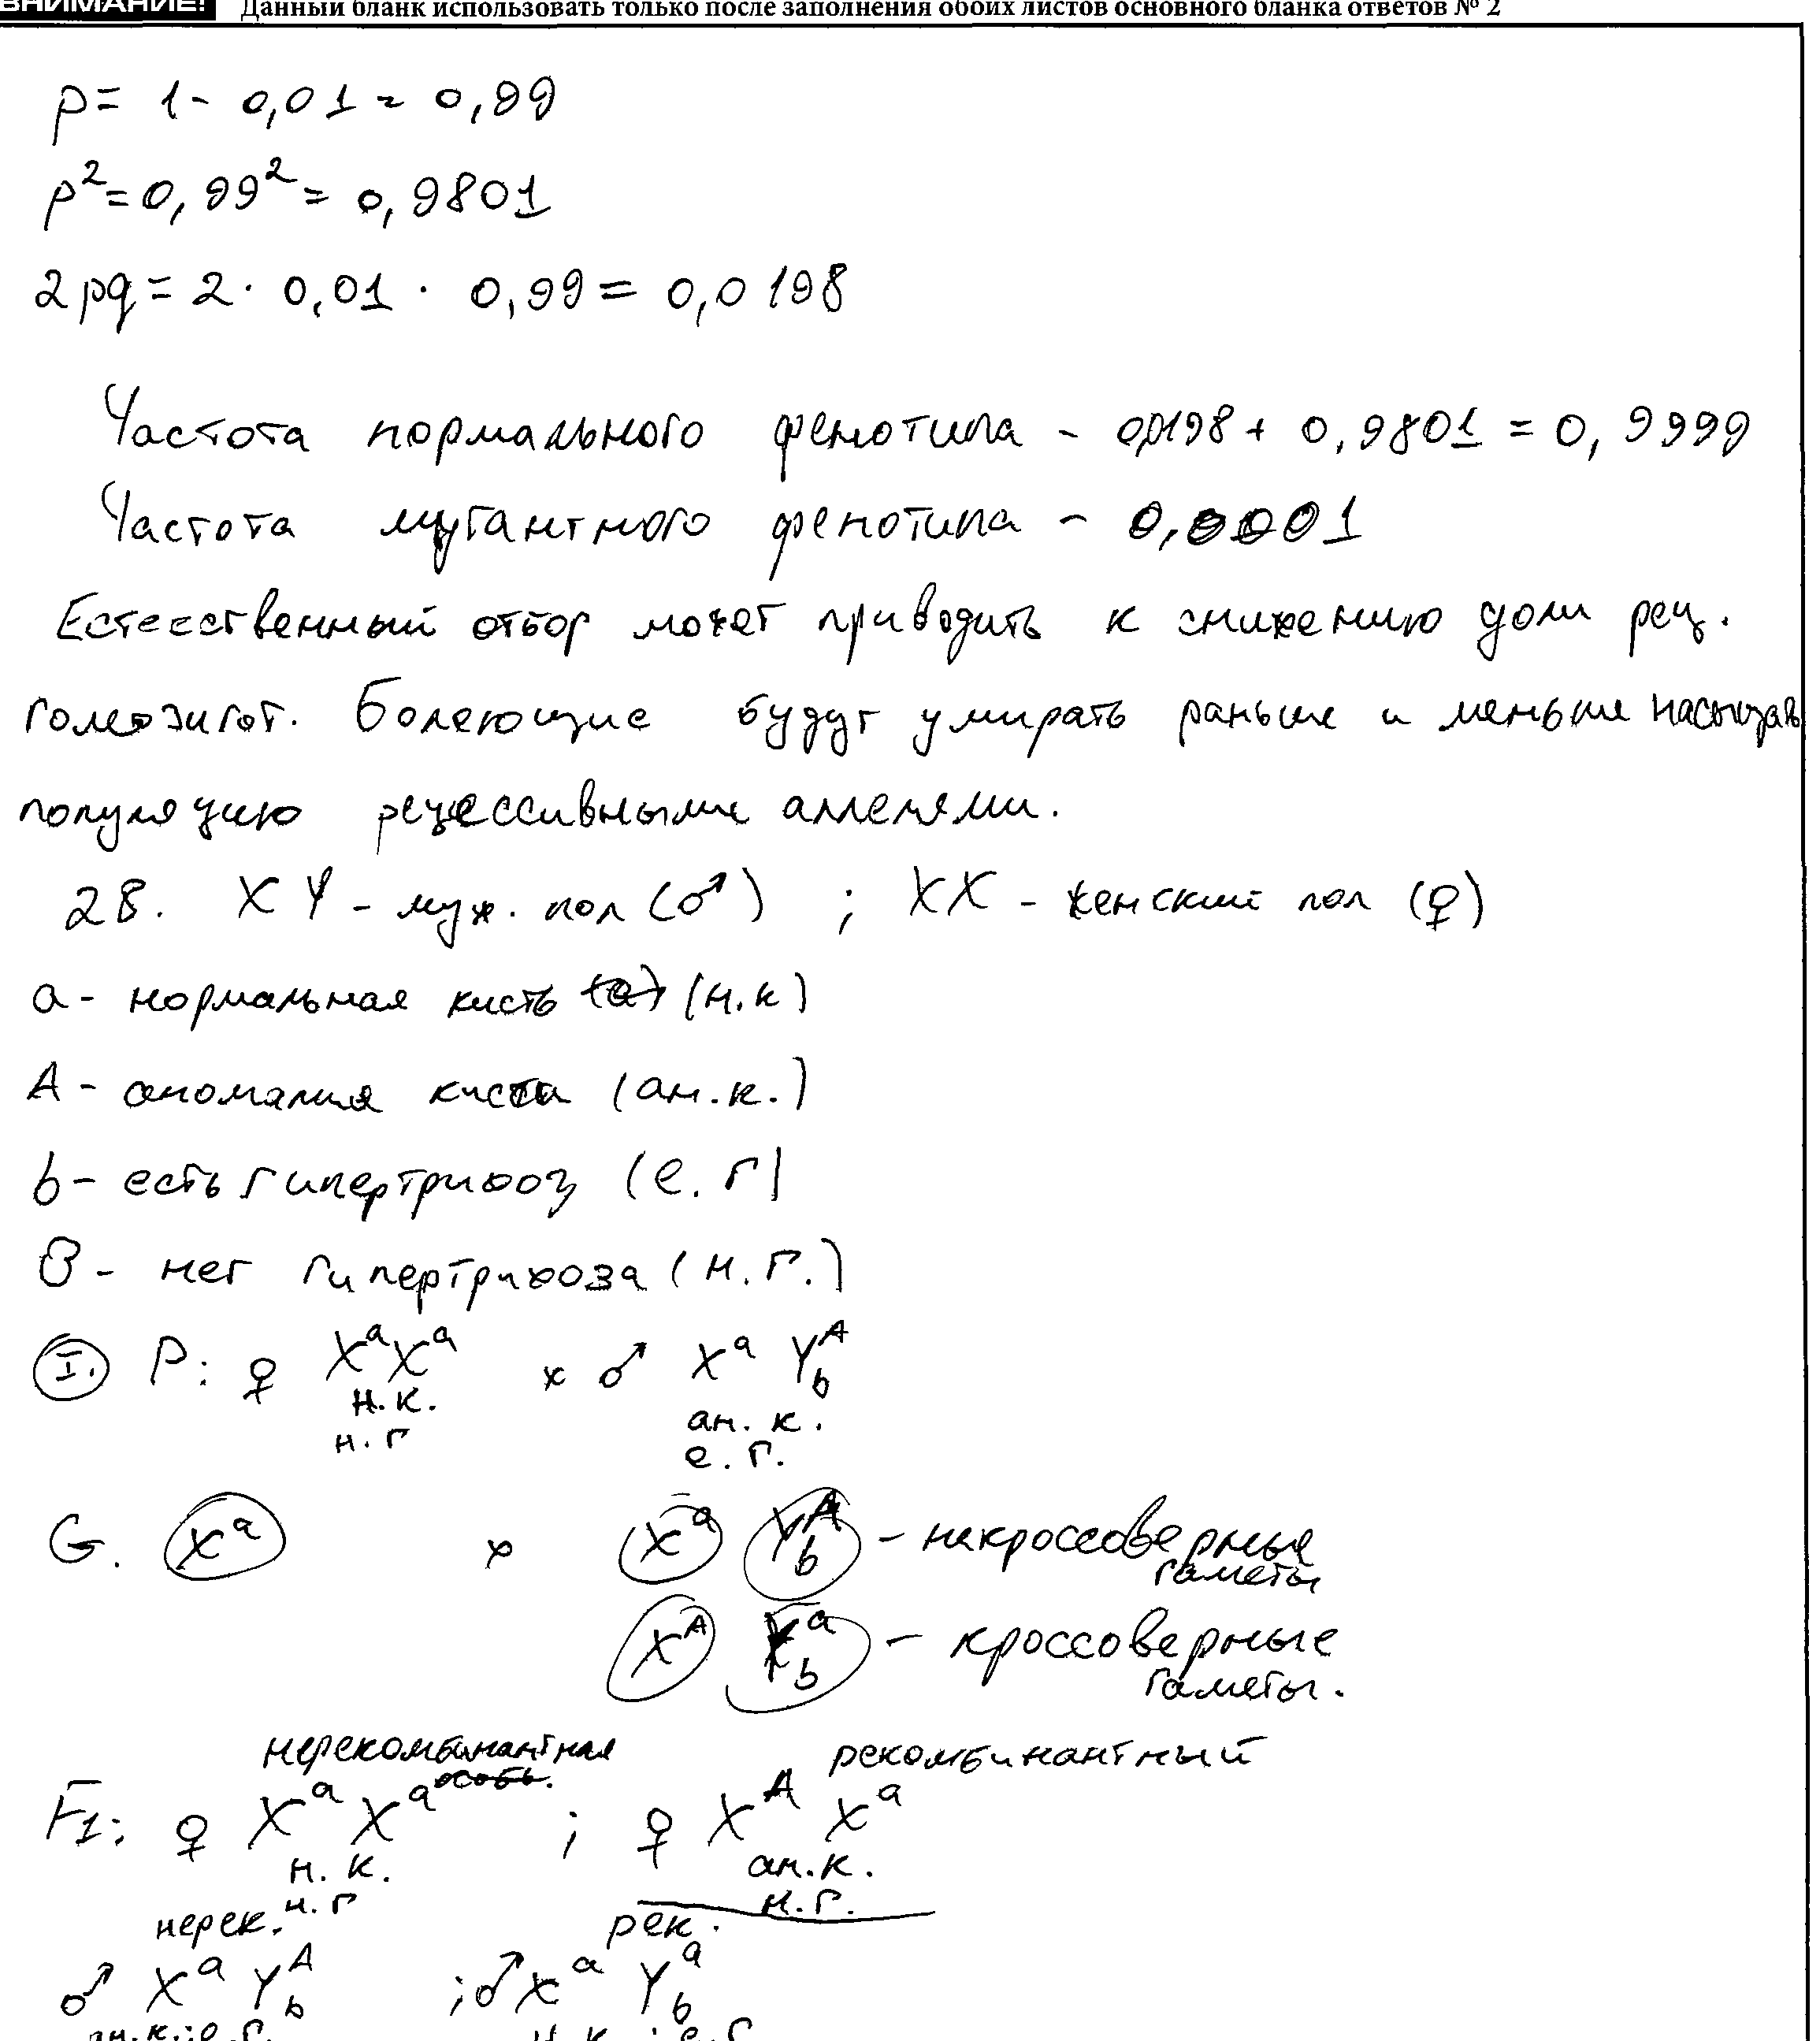 ВНИМАНИЕ! Данный бланк использовать только после заполнения обоих листов основного бланка ответов № 2
p = 1 - 0,01 = 0,99
p² = 0,99² = 0,9801
2pq = 2 · 0,01 · 0,99 = 0,0198
Частота нормального фенотипа - 0,0198 + 0,9801 = 0,9999
Частота мутантного фенотипа - 0,0001
Естественный отбор может приводить к снижению доли рец.
гомозигот. Болеющие будут умирать раньше и меньше насыщать
популяцию рецессивными аллелями.
28. XY - муж. пол (♂) ; XX - женский пол (♀)
a - нормальная кисть (a) (н.к)
A - аномалия кисти (ан.к.)
b - есть гипертрихоз (е.г)
B - нет гипертрихоза (н.г.)
I. P: ♀ XᵃXᵃ x ♂ Xᵃ Yᴬb
н.к. ан. к.
н.г е. г.
G. Xᵃ x Xᵃ Yᴬb - некроссоверные
гаметы
Xᴬ Yᵃb - кроссоверные
гаметы.
нерекомбинантная рекомбинантный
особь.
F1: ♀ Xᵃ Xᵃ ; ♀ Xᴬ Xᵃ
н. к. ан.к.
н.г н.г.
нерек. рек.
♂ Xᵃ Yᴬb ; ♂ Xᵃ Yᵃb
ан.к.; е.г. н.к.; е.г